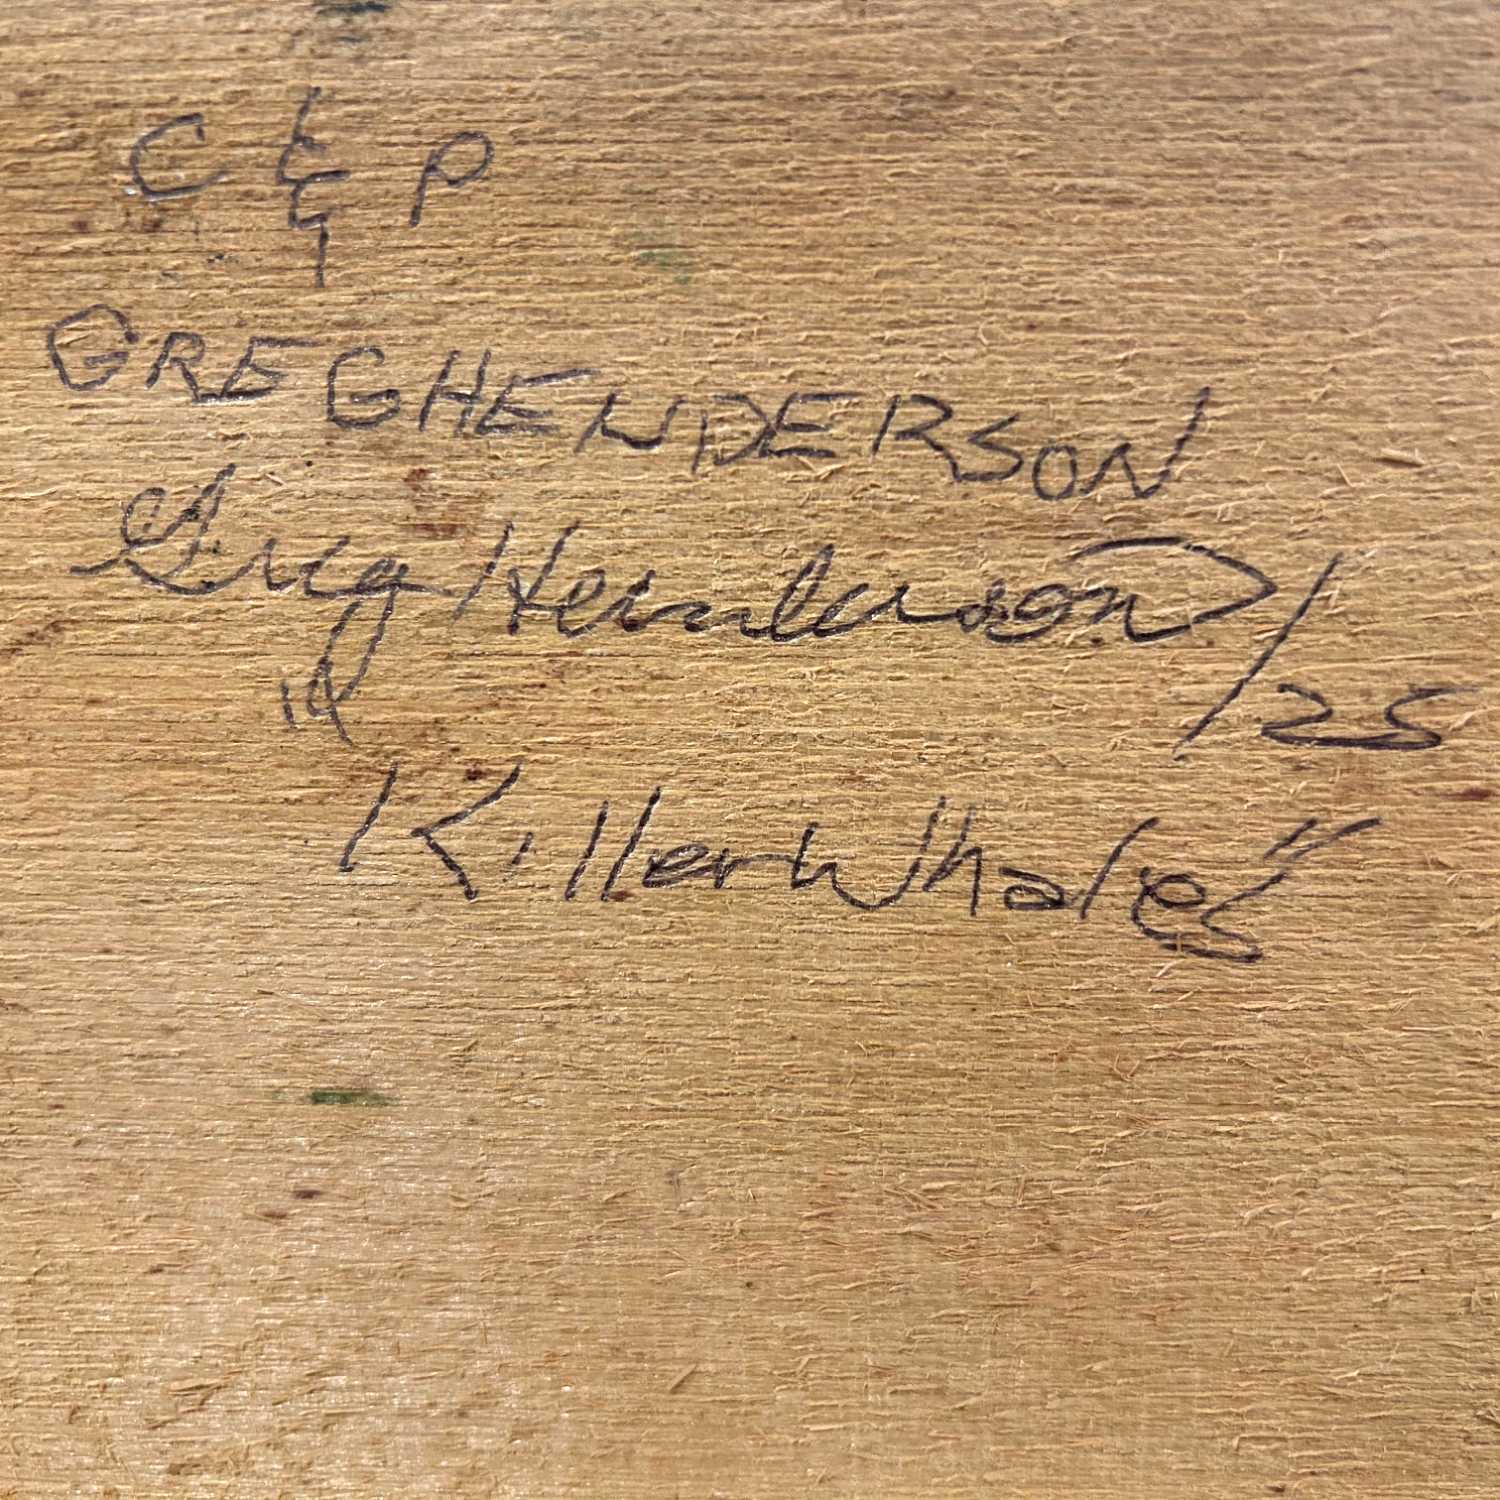 C & P
GREG HENDERSON
Greg Henderson /25
Killer Whales"